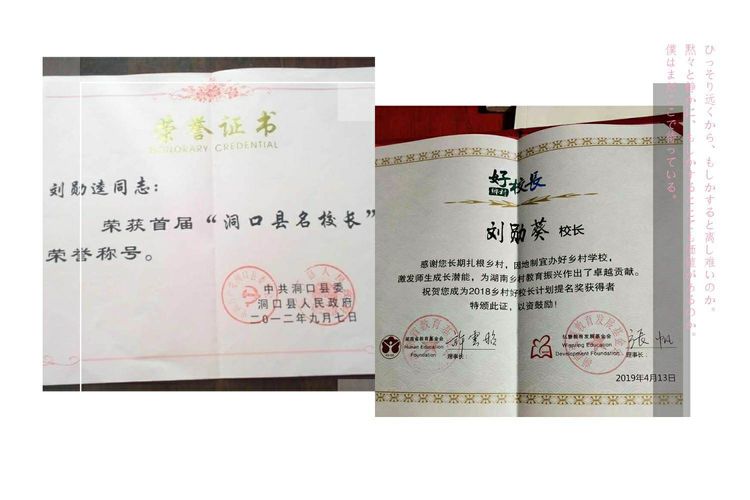 荣誉证书
HONORARY CREDENTIAL
刘勋逵同志：
荣获首届“洞口县名校长”
荣誉称号。
中共洞口县委
洞口县人民政府
二〇一二年九月七日
好校長
刘勋葵 校长
感谢您长期扎根乡村，因地制宜办好乡村学校，
激发师生成长潜能，为湖南乡村教育振兴作出了卓越贡献。
祝贺您成为2018乡村好校长计划提名奖获得者
特颁此证，以资鼓励！
湖南省教育基金会
Hunan Education
Foundation
理事长：
弘慧教育发展基金会
Development Foundation
理事长：
2019年4月13日
ひっそり远くから、もしかすると离し难いのか。
黙々と静かに、
僕はまだここで待っている。